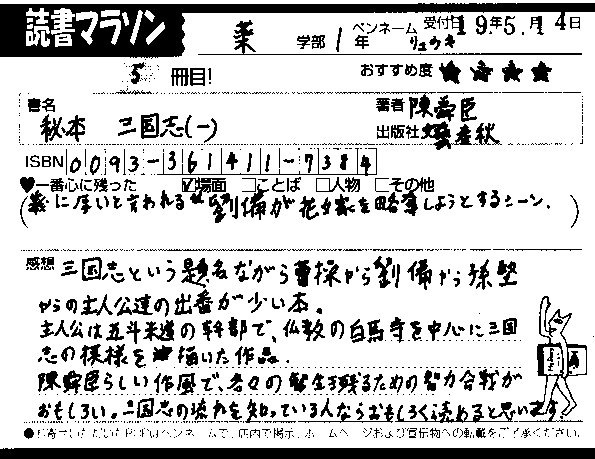 読書マラソン
薬 学部 1 年 ペンネーム リュウキ 受付日 19年5月14日
5 冊目! おすすめ度 ★★★★
書名 秘本 三国志(一) 著者 陳舜臣
出版社 文藝春秋
ISBN 0093-361411-7384
♥一番心に残った ☑場面 □ことば □人物 □その他
(義に厚いと言われる 劉備が花嫁を略奪しようとするシーン.)
感想 三国志という題名ながら曹操から劉備から孫堅
からの主人公達の出番が少い本。
主人公は五斗米道の幹部で、仏教の白馬寺を中心に三国
志の模様を描いた作品.
陳舜臣らしい作風で、各々の 生き残るための智力合戦が
おもしろい。三国志の流れを知っている人ならおもしろく読めると思います.
●お寄せいただいたPOPはペンネームで、店内で掲示、ホームページおよび宣伝物への転載をご了承ください.